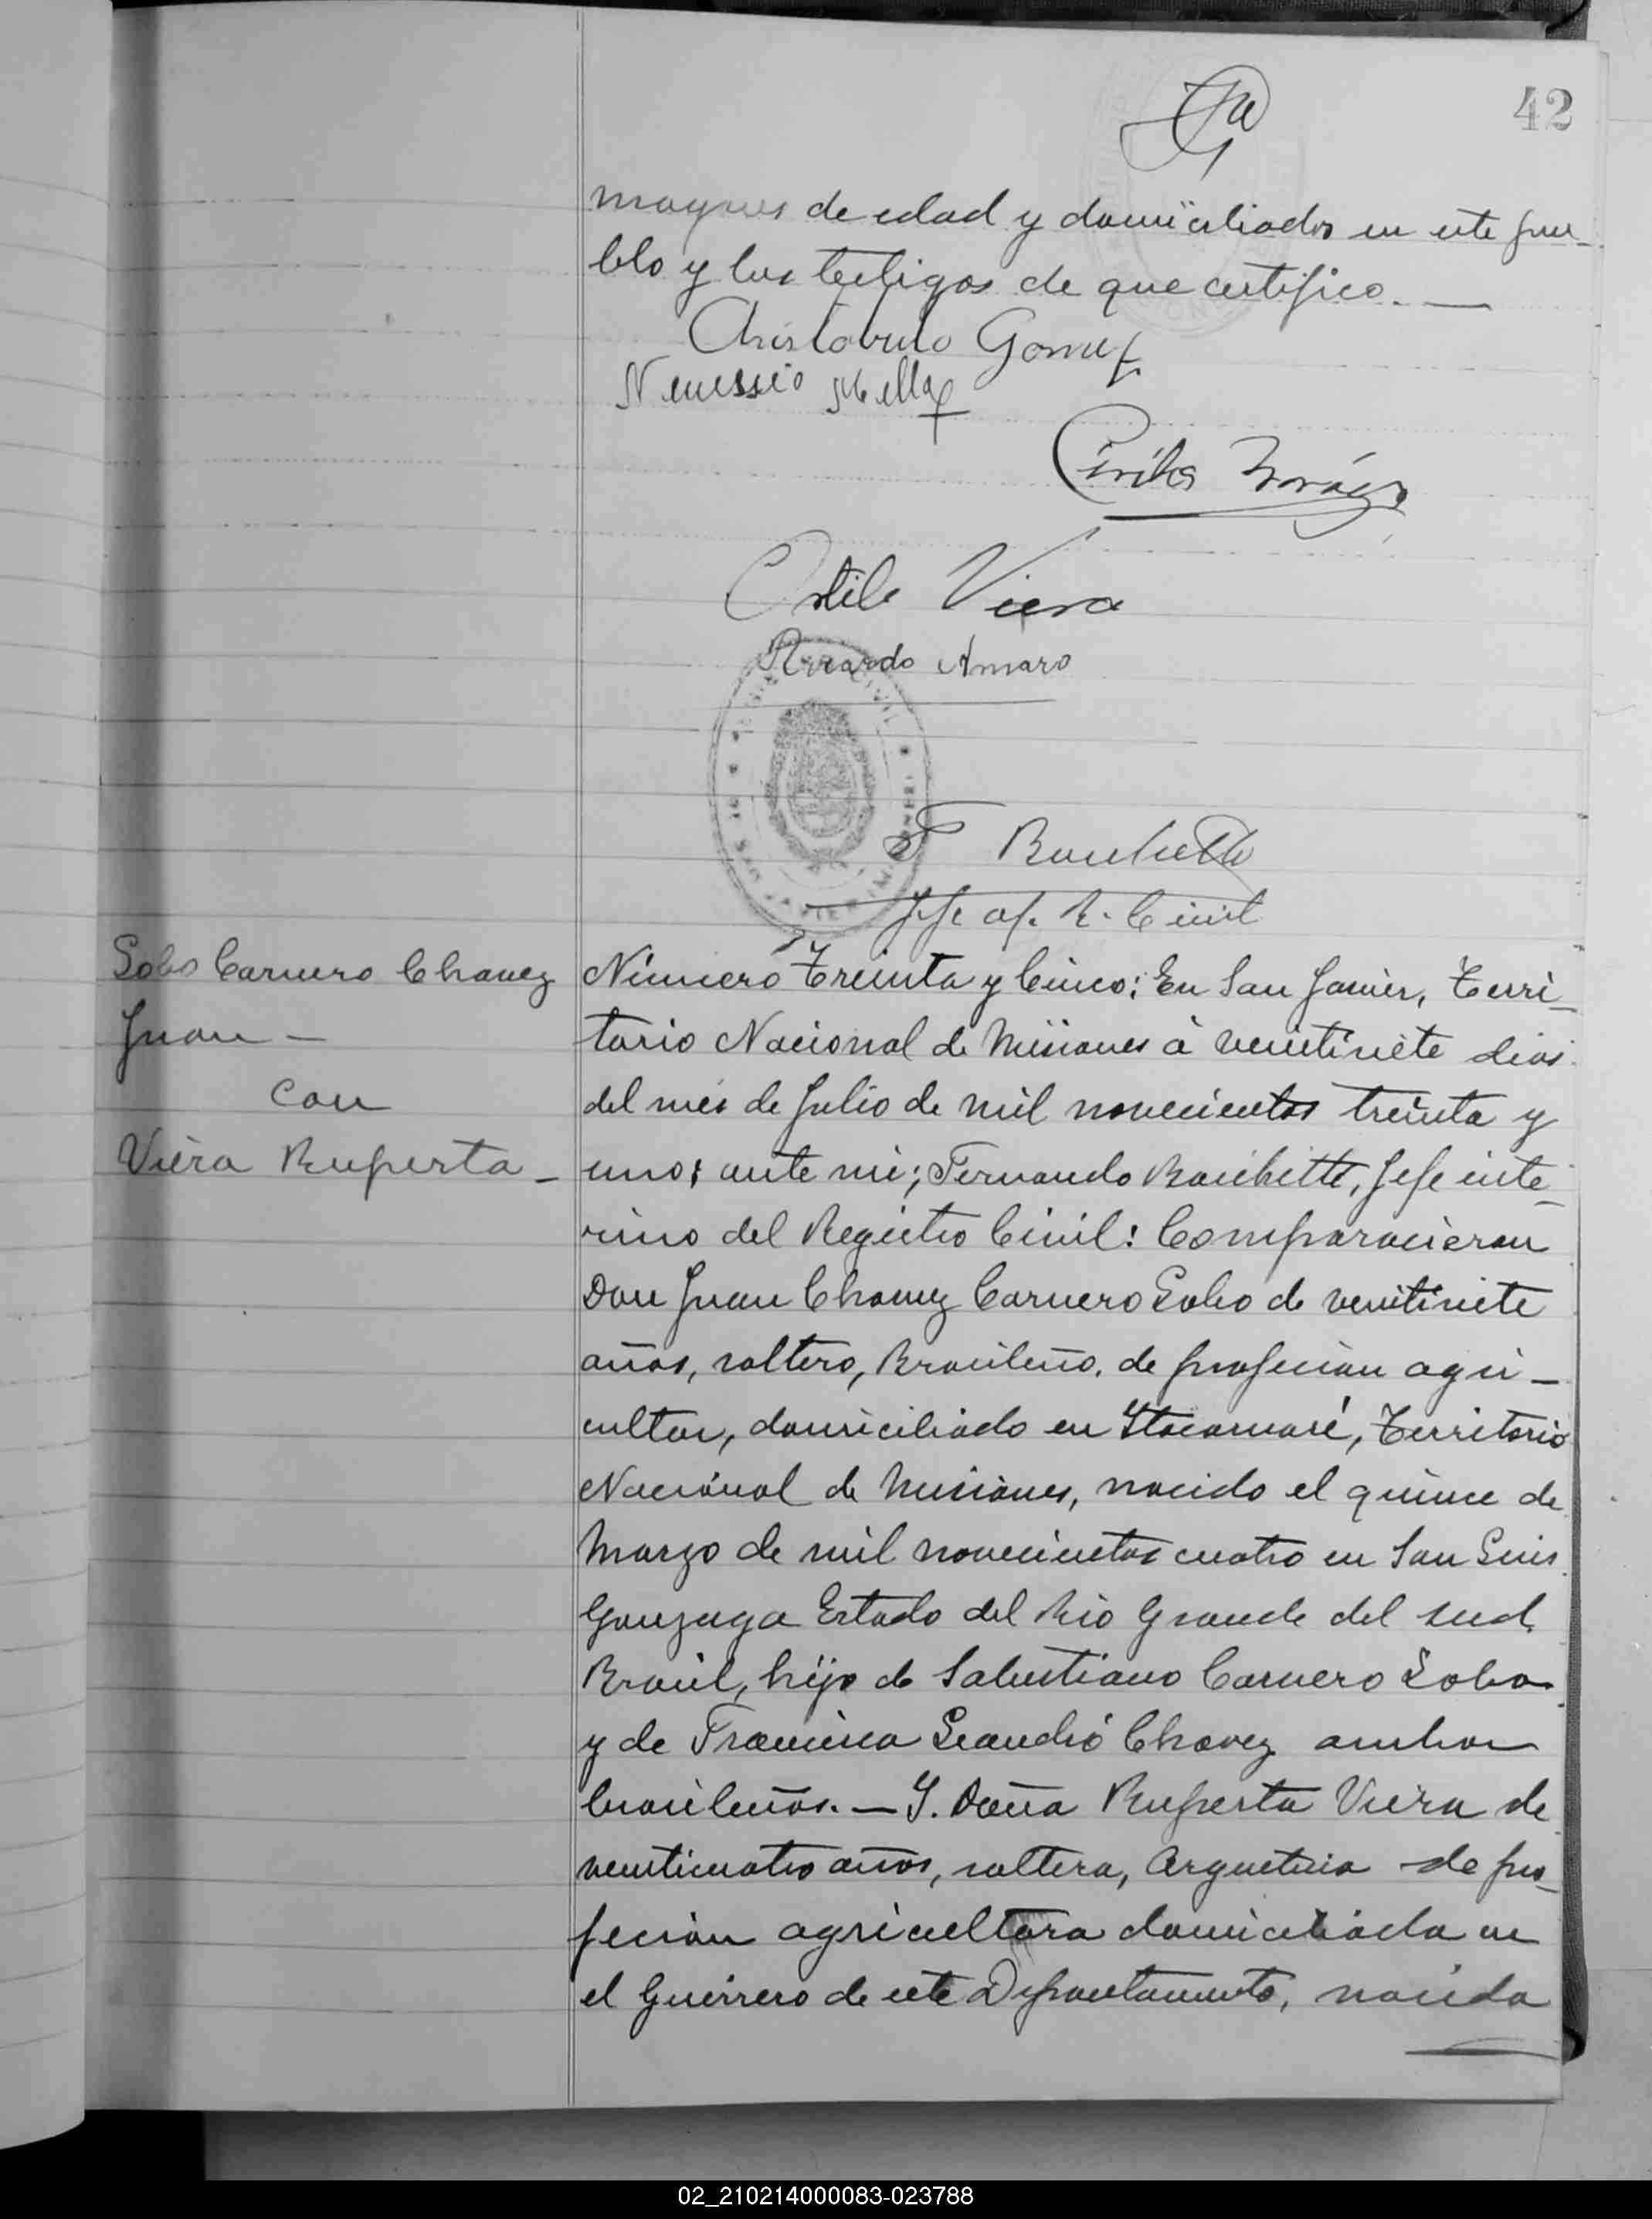 42
mayores de edad y domiciliados en este pue-
blo y los testigos de que certifico. —
Aristobulo Gomez
Nemessio Mella
Cirilo
Viera
Ricardo Amaro
F Banchette
Jefe of. R. Civil
Lobo Carnero Chavez
Juan —
con
Viera Ruperta —
Número Treinta y Cinco: En San Javier, Terri-
torio Nacional de Misiones à veintisiete dias
del mes de Julio de mil novecientos treinta y
uno; ante mi; Fernando Banchette, Jefe inte-
rino del Registro Civil: Comparacieron
Don Juan Chavez Carnero Lobo de veintisiete
años, soltero, Brasileño. de profesion agri-
cultor, domiciliado en Itacaruaré, Territorio
Nacional de Misiones, nacido el quince de
Marzo de mil novecientos cuatro en San Luis
Gonzaga Estado del Rio Grande del Sud.
Brasil, hijo de Salustiano Carnero Lobo
y de Francisca Leandró Chavez ambos
brasileños. — Y. Doña Ruperta Viera de
veinticuatro años, soltera, Argentina de pro-
fesion agricultora domiciliada en
el Guerrero de este Departamento, nacida
02_210214000083-023788